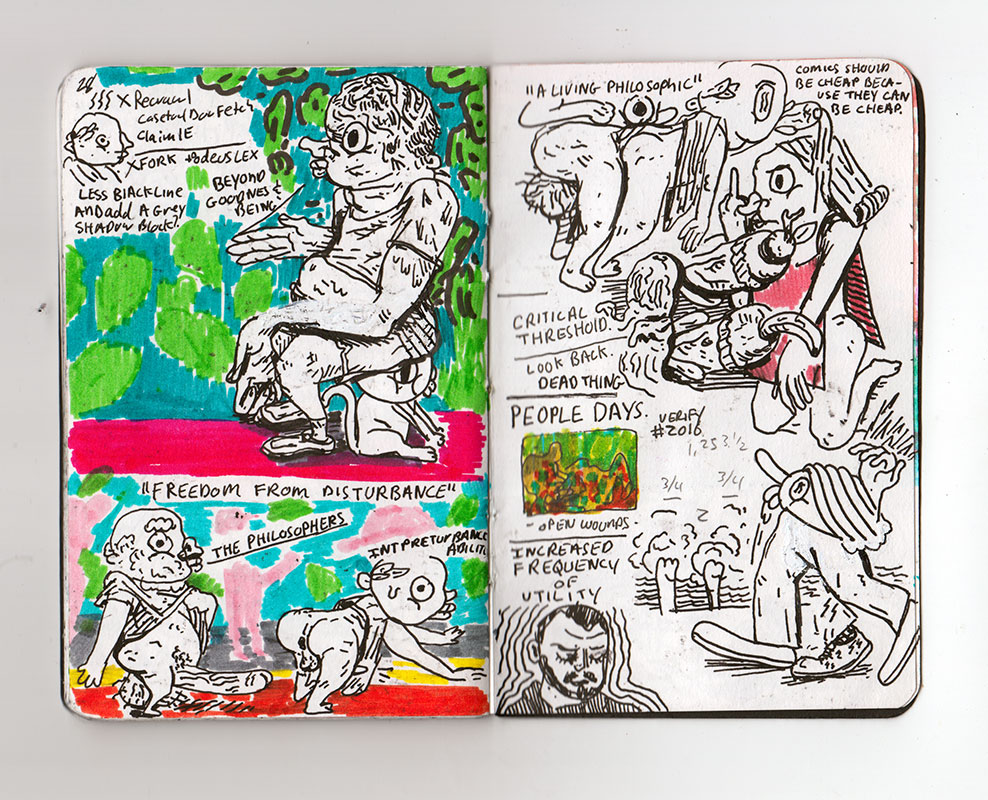 X Recurrul
X FORK
LESS BlACK LINE
AND add A Grey
SHADOW Block.
BEYOND
GOODNES &
BEING
"FREEDOM FROM DISTURBANCE"
THE PHILOSOPHERS
INTPRETURBANCE
ABILITY
"A LIVING PHILOSOPHIC"
COMICS SHOULD
BE CHEAP BECA-
USE THEY CAN
BE CHEAP.
CRITICAL
THRESHOLD.
LOOK BACK.
DEAD THING
PEOPLE DAYS.
VERIFY
#2016
1,253.½
3/4 3/4
2
- OPEN WOUNDS -
INCREASED
FREQUENCY
OF
UTILITY